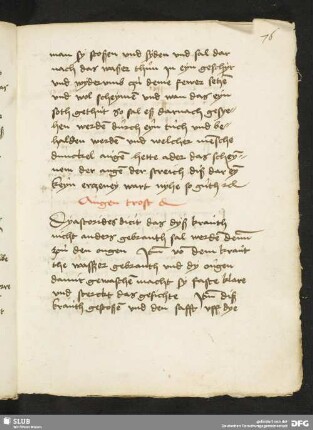 76
man sy stossen und syden und sal dar
nach das wasser thun in eyn geschyr
und wyder umb zu deme fewer setzen
und wol scheymen und wan das eyn
soth gethut so sal es darnach gesye
hen werden durch eyn tuch und be
halden werden und welcher mesche
dunckel augen hette ader das schey
nem der augen der streich diss dar
keyn ertzeney wart nyhe so guth
Augen trost
Dyascorides dicit das dyss krauth
nicht anders gebrauth sal werden denn
zu den augen Item vo dem kraut
the wasser gebrauth und dy augen
damit gewasche macht sy faste klare
und sterckt das gesichte Item diss
krauth gestossen und den safft uff dye
SLUB
DFG